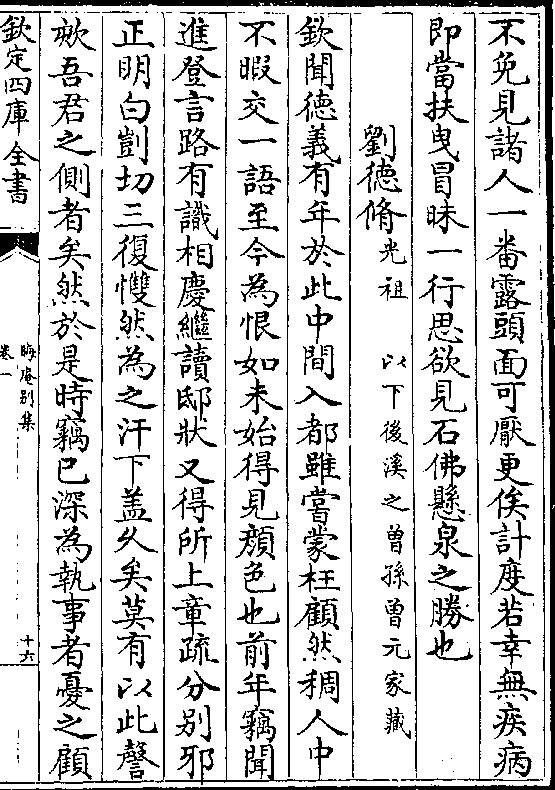 不免見諸人一番露頭面可厭更俟計度若幸無疾病
即當扶曳冒昧一行思欲見石佛懸泉之勝也
劉德脩光祖 以下後溪之曾孫曾元家藏
欽聞德義有年於此中間入都雖嘗蒙枉顧然稠人中
不暇交一語至今為恨如未始得見顔色也前年竊聞
進登言路有識相慶繼讀邸狀又得所上章疏分别邪
正明白剴切三復慨然為之汗下盖久矣莫有以此謦
欬吾君之側者矣然於是時竊已深為執事者憂之顧
欽定四庫全書
晦庵别集
卷一
十六